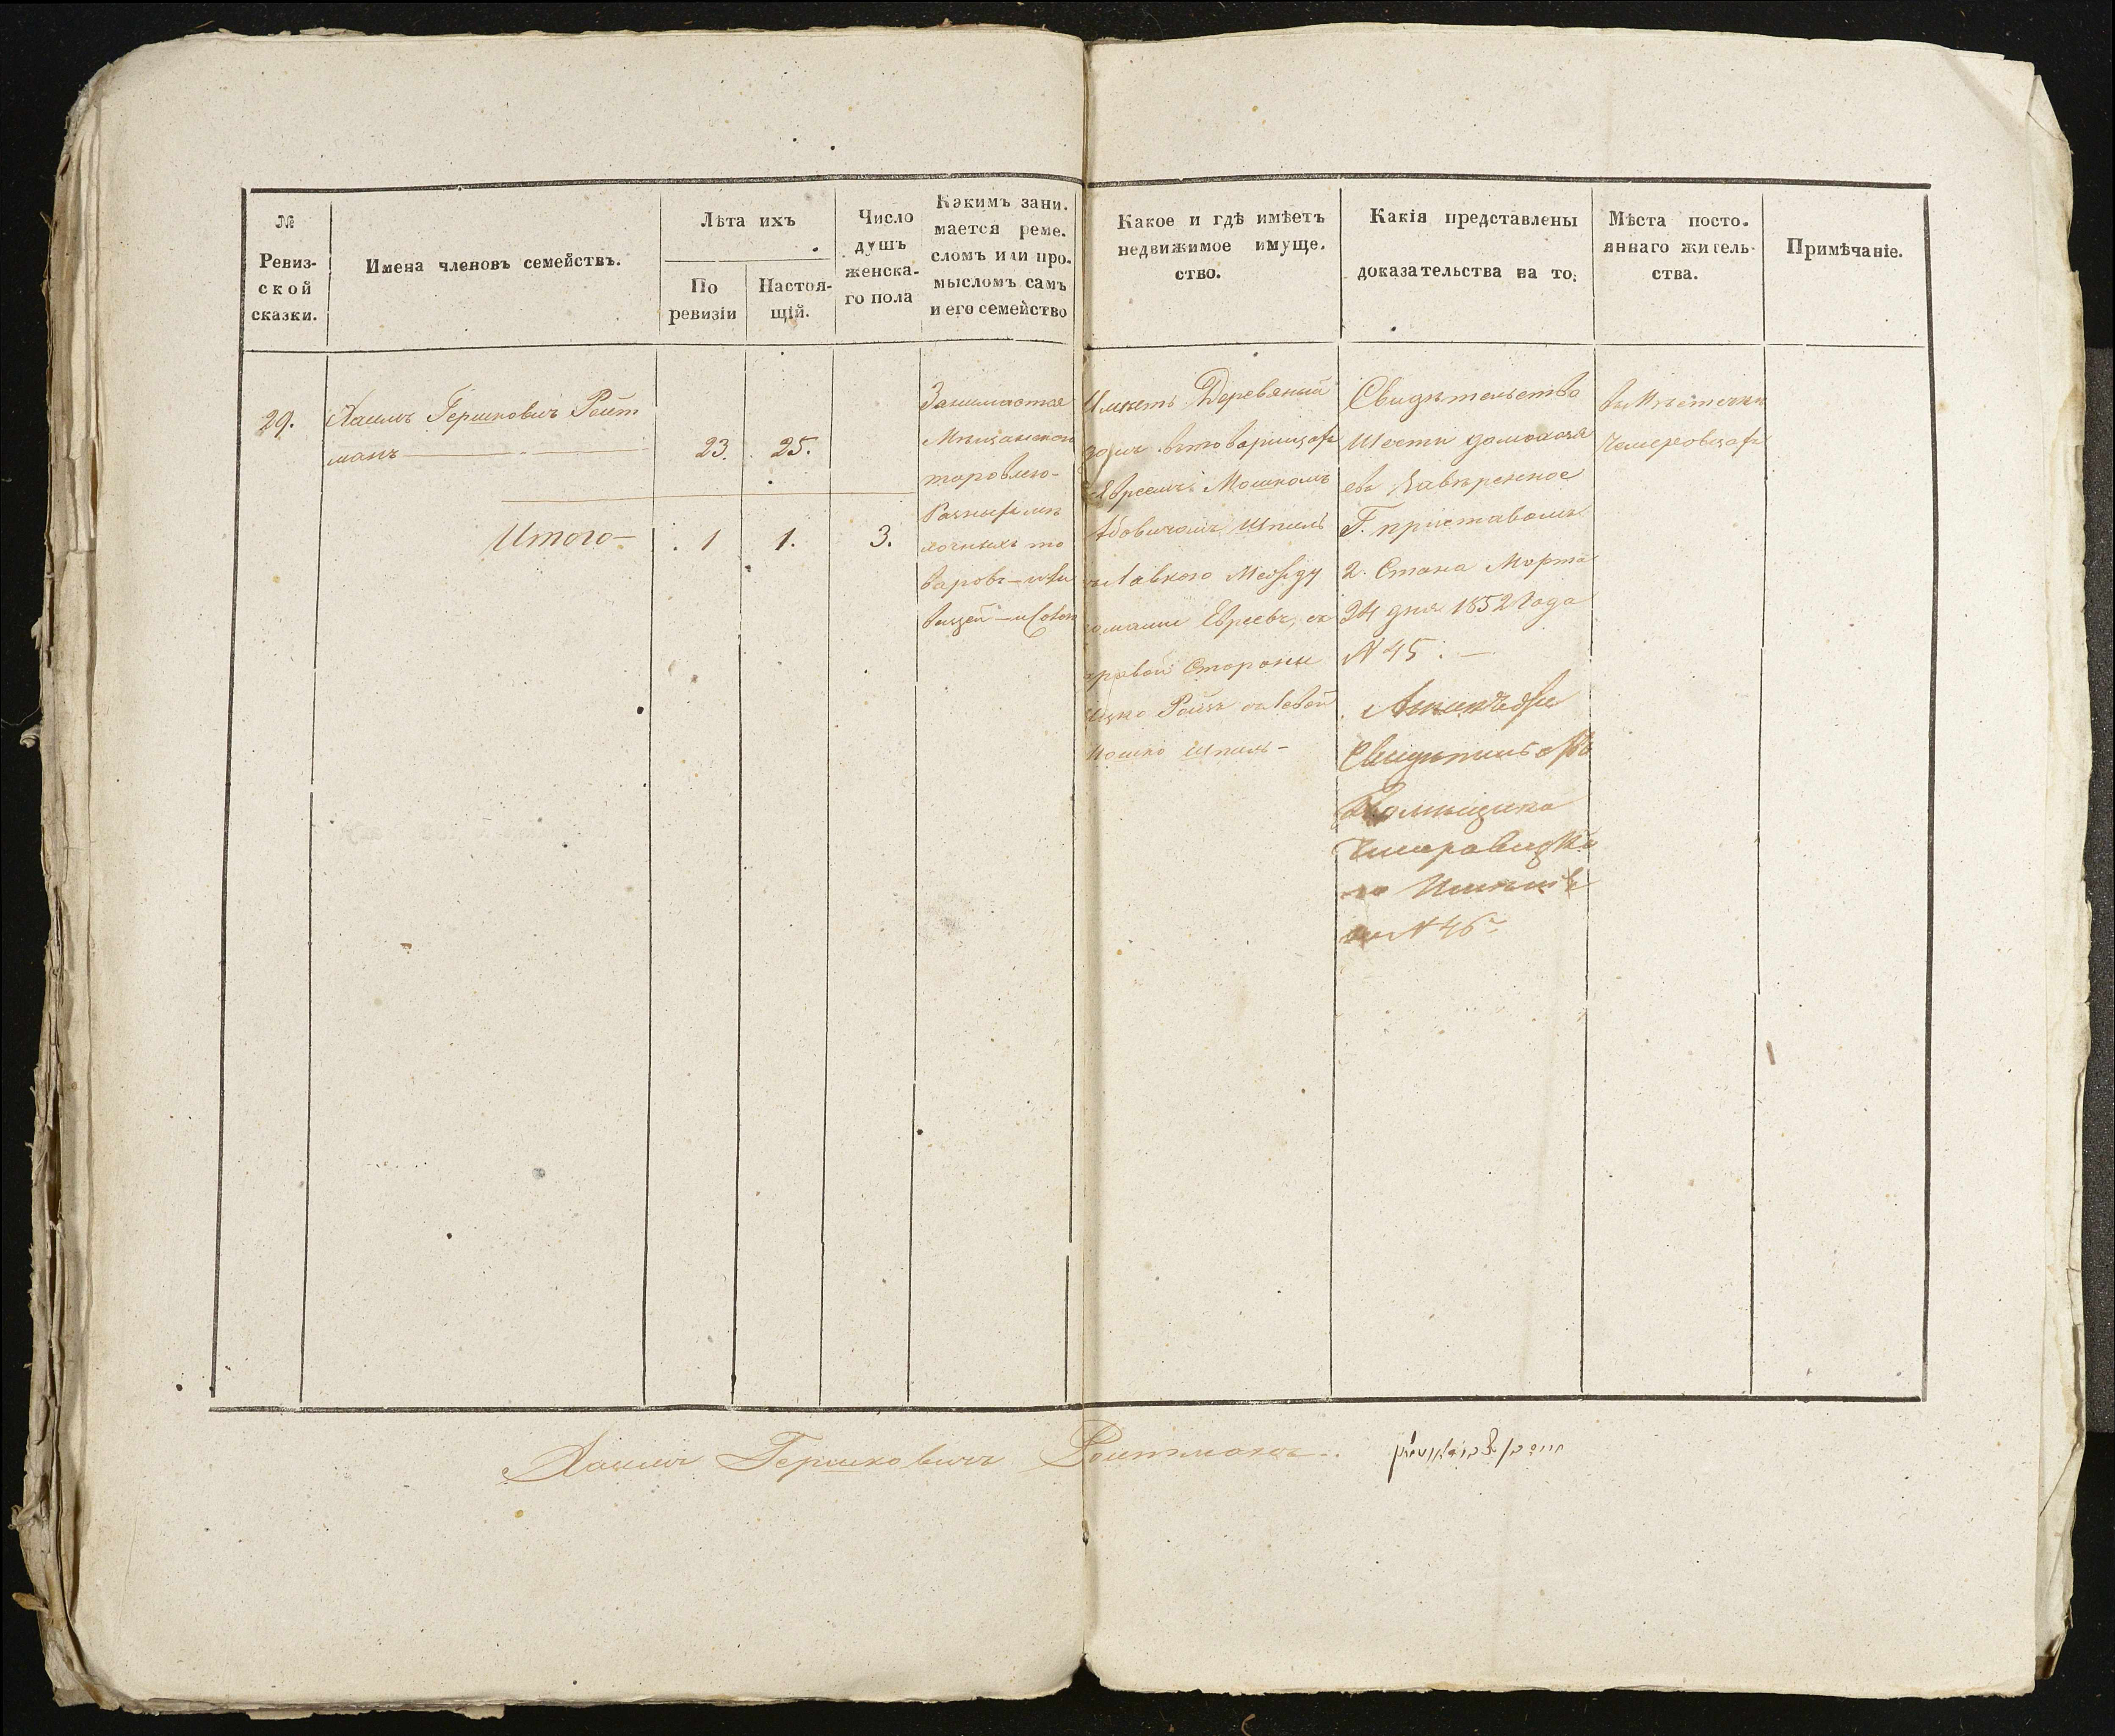 №
Ревиз-
ской
сказки.
Имена членовъ семействъ.
Лѣта ихъ
По
ревизіи
Настоя-
щій.
Число
душъ
женска-
го пола
Какимъ зани.
мается реме.
сломъ или про.
мысломъ самъ
и его семейство
Какое и гдѣ имѣетъ
недвижимое имуще.
ство.
Какія представлены
доказательства на то.
Мѣста посто.
яннаго житель-
ства.
Примѣчаніе.
29.
Хаимъ Гершковичъ Роит
манъ
23.
25.
Итого —
1
1.
3.
Занимается
Мѣщанскою
торовлею —
Разныхъ мѣ
лочныхъ то
варовъ —
вещей —
Имѣетъ Деревяный
домъ въ товарищахъ
Евреемъ Мошкомъ
Шпиль
Между
домами Евреевъ, съ
правой Стороны
Ицко Ройзъ съ левой
Мошко Шпиль —
Свидѣтельство
Шести домохозя
евъ Завѣренное
Г. приставомъ
2. Стана Марта
24 дня 1852 Года
N 45. —
Свидѣтельство
N 46
въ Мѣстечки
Чемеровцахъ
Хаимъ Гершковичъ Роитманъ